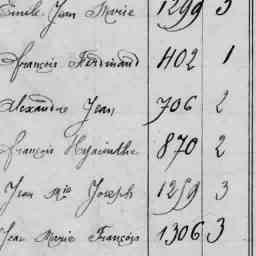 Emile Jean Marie 1299 3
François Ferdinand 402 1
Alexandre Jean 706 2
François Hyacinthe 870 2
Jean Mie Joseph 1259 3
Jean Marie François 1306 3